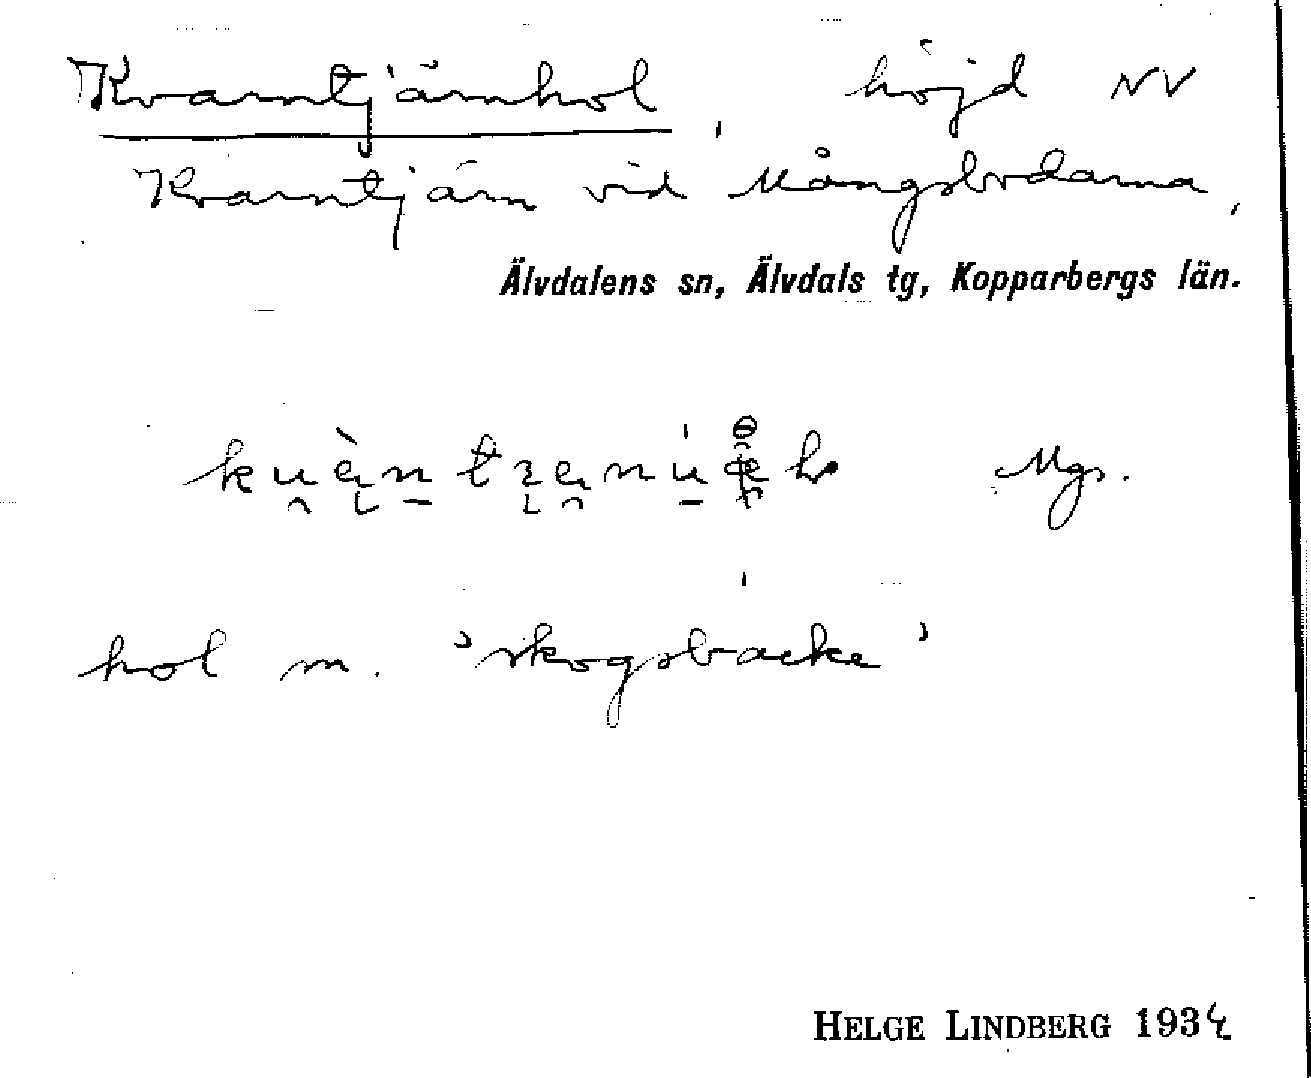 Kvarntjärnhol, höjd NV
Kvarntjärn vid Mångsbodarna,
Älvdalens sn, Älvdals tg, Kopparbergs län.
Mgs.
hol m. 'skogsbacke'
HELGE LINDBERG 1934